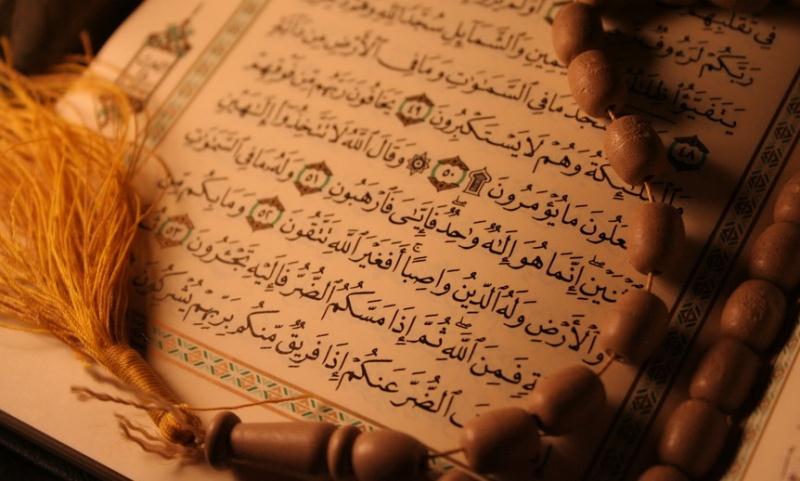 فِى تَقَلُّبِهِمْ
رَبَّكُمْ لَرَءُوفٌ
يَتَفَيَّؤُا۟ ظِلَـٰلُهُۥ وَٱلشَّمَآئِلِ سُجَّدًا لِّلَّهِ
٤٨ يَسْجُدُ مَا فِى ٱلسَّمَـٰوَٰتِ وَمَا فِى ٱلْأَرْضِ مِن دَآبَّةٍ
وَٱلْمَلَـٰٓئِكَةُ وَهُمْ لَا يَسْتَكْبِرُونَ ٤٩ يَخَافُونَ رَبَّهُم مِّن فَوْقِهِمْ
مَا يُؤْمَرُونَ ۩ ٥٠ ۞ وَقَالَ ٱللَّهُ لَا تَتَّخِذُوٓا۟ إِلَـٰهَيْنِ
إِنَّمَا هُوَ إِلَـٰهٌ وَٰحِدٌ فَإِيَّـٰىَ فَٱرْهَبُونِ ٥١ وَلَهُۥ مَا فِى ٱلسَّمَـٰوَٰتِ
وَٱلْأَرْضِ وَلَهُ ٱلدِّينُ وَاصِبًا أَفَغَيْرَ ٱللَّهِ تَتَّقُونَ ٥٢ وَمَا بِكُم مِّن
فَمِنَ ٱللَّهِ ثُمَّ إِذَا مَسَّكُمُ ٱلضُّرُّ فَإِلَيْهِ تَجْـَٔرُونَ ٥٣
ٱلضُّرَّ عَنكُمْ إِذَا فَرِيقٌ مِّنكُم بِرَبِّهِمْ يُشْرِكُونَ